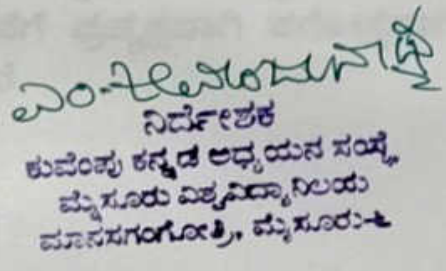 ಎಂ.
ನಿರ್ದೇಶಕ
ಕುವೆಂಪು ಕನ್ನಡ ಅಧ್ಯಯನ ಸಂಸ್ಥೆ
ಮೈಸೂರು ವಿಶ್ವವಿದ್ಯಾನಿಲಯ
ಮಾನಸಗಂಗೋತ್ರಿ, ಮೈಸೂರು-೬